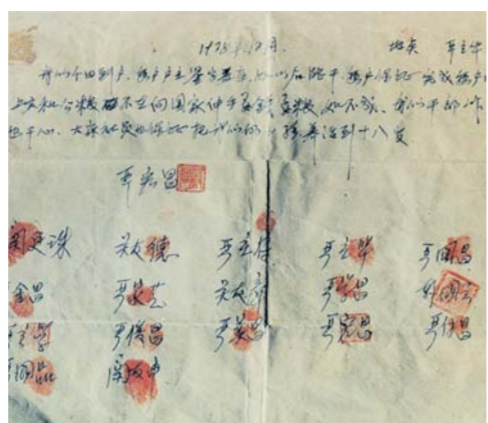 1978年12月 地点 严立华
我们分田到户,每户户主签字盖章,如以后能干,每户保证完成每户
上交和公粮 不在向国家伸手要钱要粮,如不成,我们干部作
也干心,大家社员也保证把我们的小孩养活到十八岁
严宏昌
关廷珠 关友德 严立符 严立华 严国昌
金昌 严家芝 关友章 严学昌 韩国云
立学 严俊昌 严美昌 严宏昌 严付昌
国品 关友申